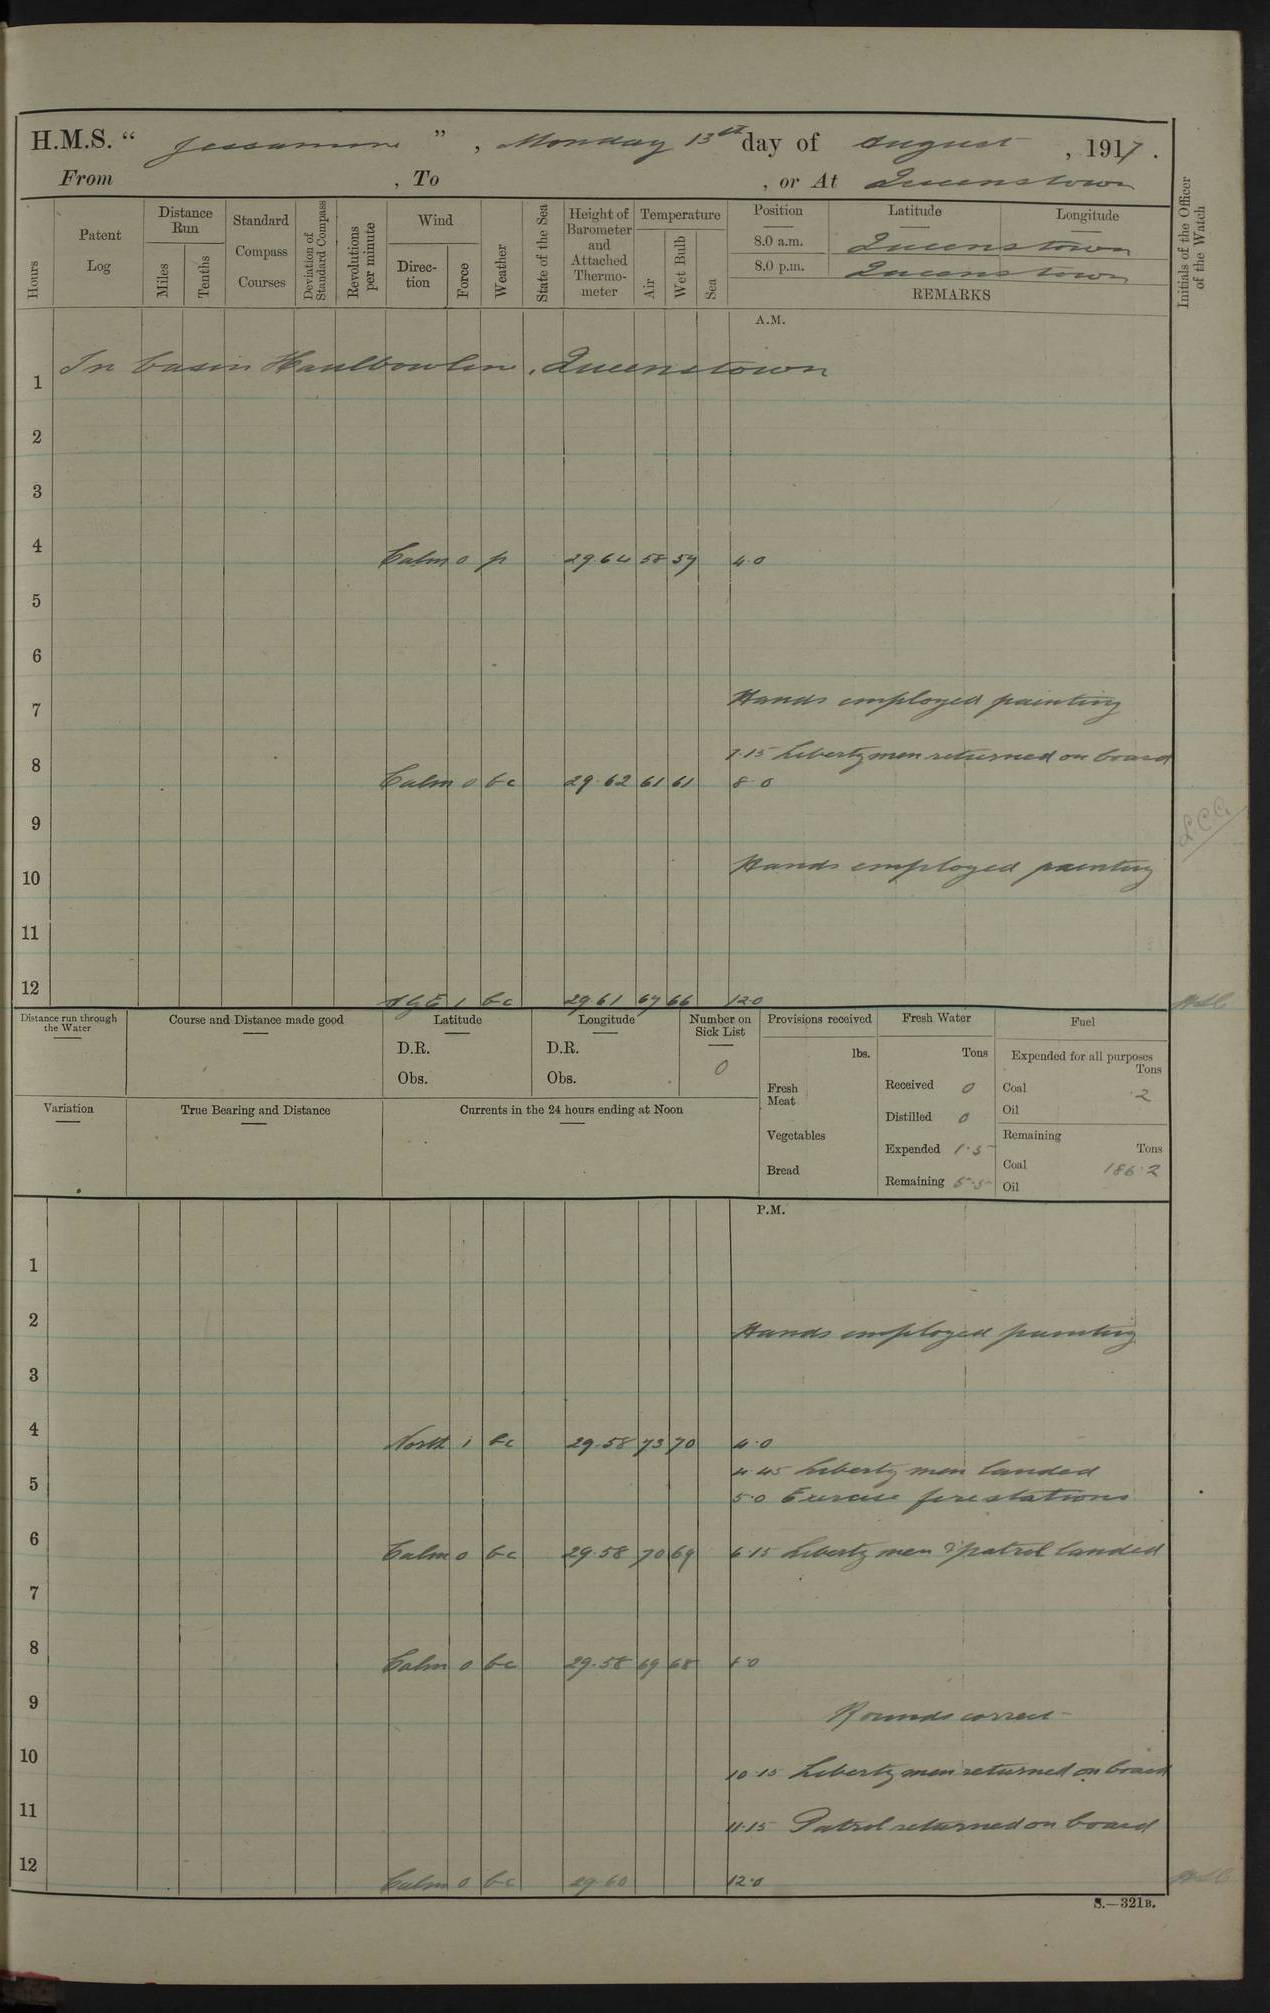 H.M.S. “ Jessamine ”, Monday 13th day of August, 1917.
From , To , or At Queenstown
Hours
Patent Log
Distance Run
Miles
Tenths
Standard Compass Courses
Deviation of Standard Compass
Revolutions per minute
Wind
Direc-tion
Force
Weather
State of the Sea
Height of Barometer and Attached Thermo-meter
Temperature
Air
Wet Bulb
Sea
Position Latitude Longitude
8.0 a.m. Queenstown
8.0 p.m. Queenstown
REMARKS
Initials of the Officer of the Watch
A.M.
1 In basin Haulbowline, Queenstown
2
3
4 Calm 0 p 29.64 58 57 4.0
5
6
7 Hands employed painting
7.15 Liberty men returned on board
8 Calm 0 bc 29.62 61 61 8.0
9
10 Hands employed painting
11
12 1 bc 29.61 67 66 12.0
Distance run through the Water
Course and Distance made good
Latitude
D.R.
Obs.
Longitude
D.R.
Obs.
Number on Sick List
0
Provisions received
lbs.
Fresh Meat
Vegetables
Bread
Fresh Water
Tons
Received 0
Distilled 0
Expended 1.5
Remaining 5.5
Fuel
Expended for all purposes
Tons
Coal 2
Oil
Remaining
Tons
Coal 186.2
Oil
Variation
True Bearing and Distance
Currents in the 24 hours ending at Noon
P.M.
1
2 Hands employed painting
3
4 North 1 bc 29.58 73 70 4.0
4.45 Liberty men landed
5 5.0 Exercise fire stations
6 Calm 0 bc 29.58 70 69 6.15 Liberty men & patrol landed
7
8 Calm 0 bc 29.58 69 68 8.0
9 Rounds correct
10 10.15 Liberty men returned on board
11 11.15 Patrol returned on board
12 Calm 0 bc 29.60 12.0
S.—321B.